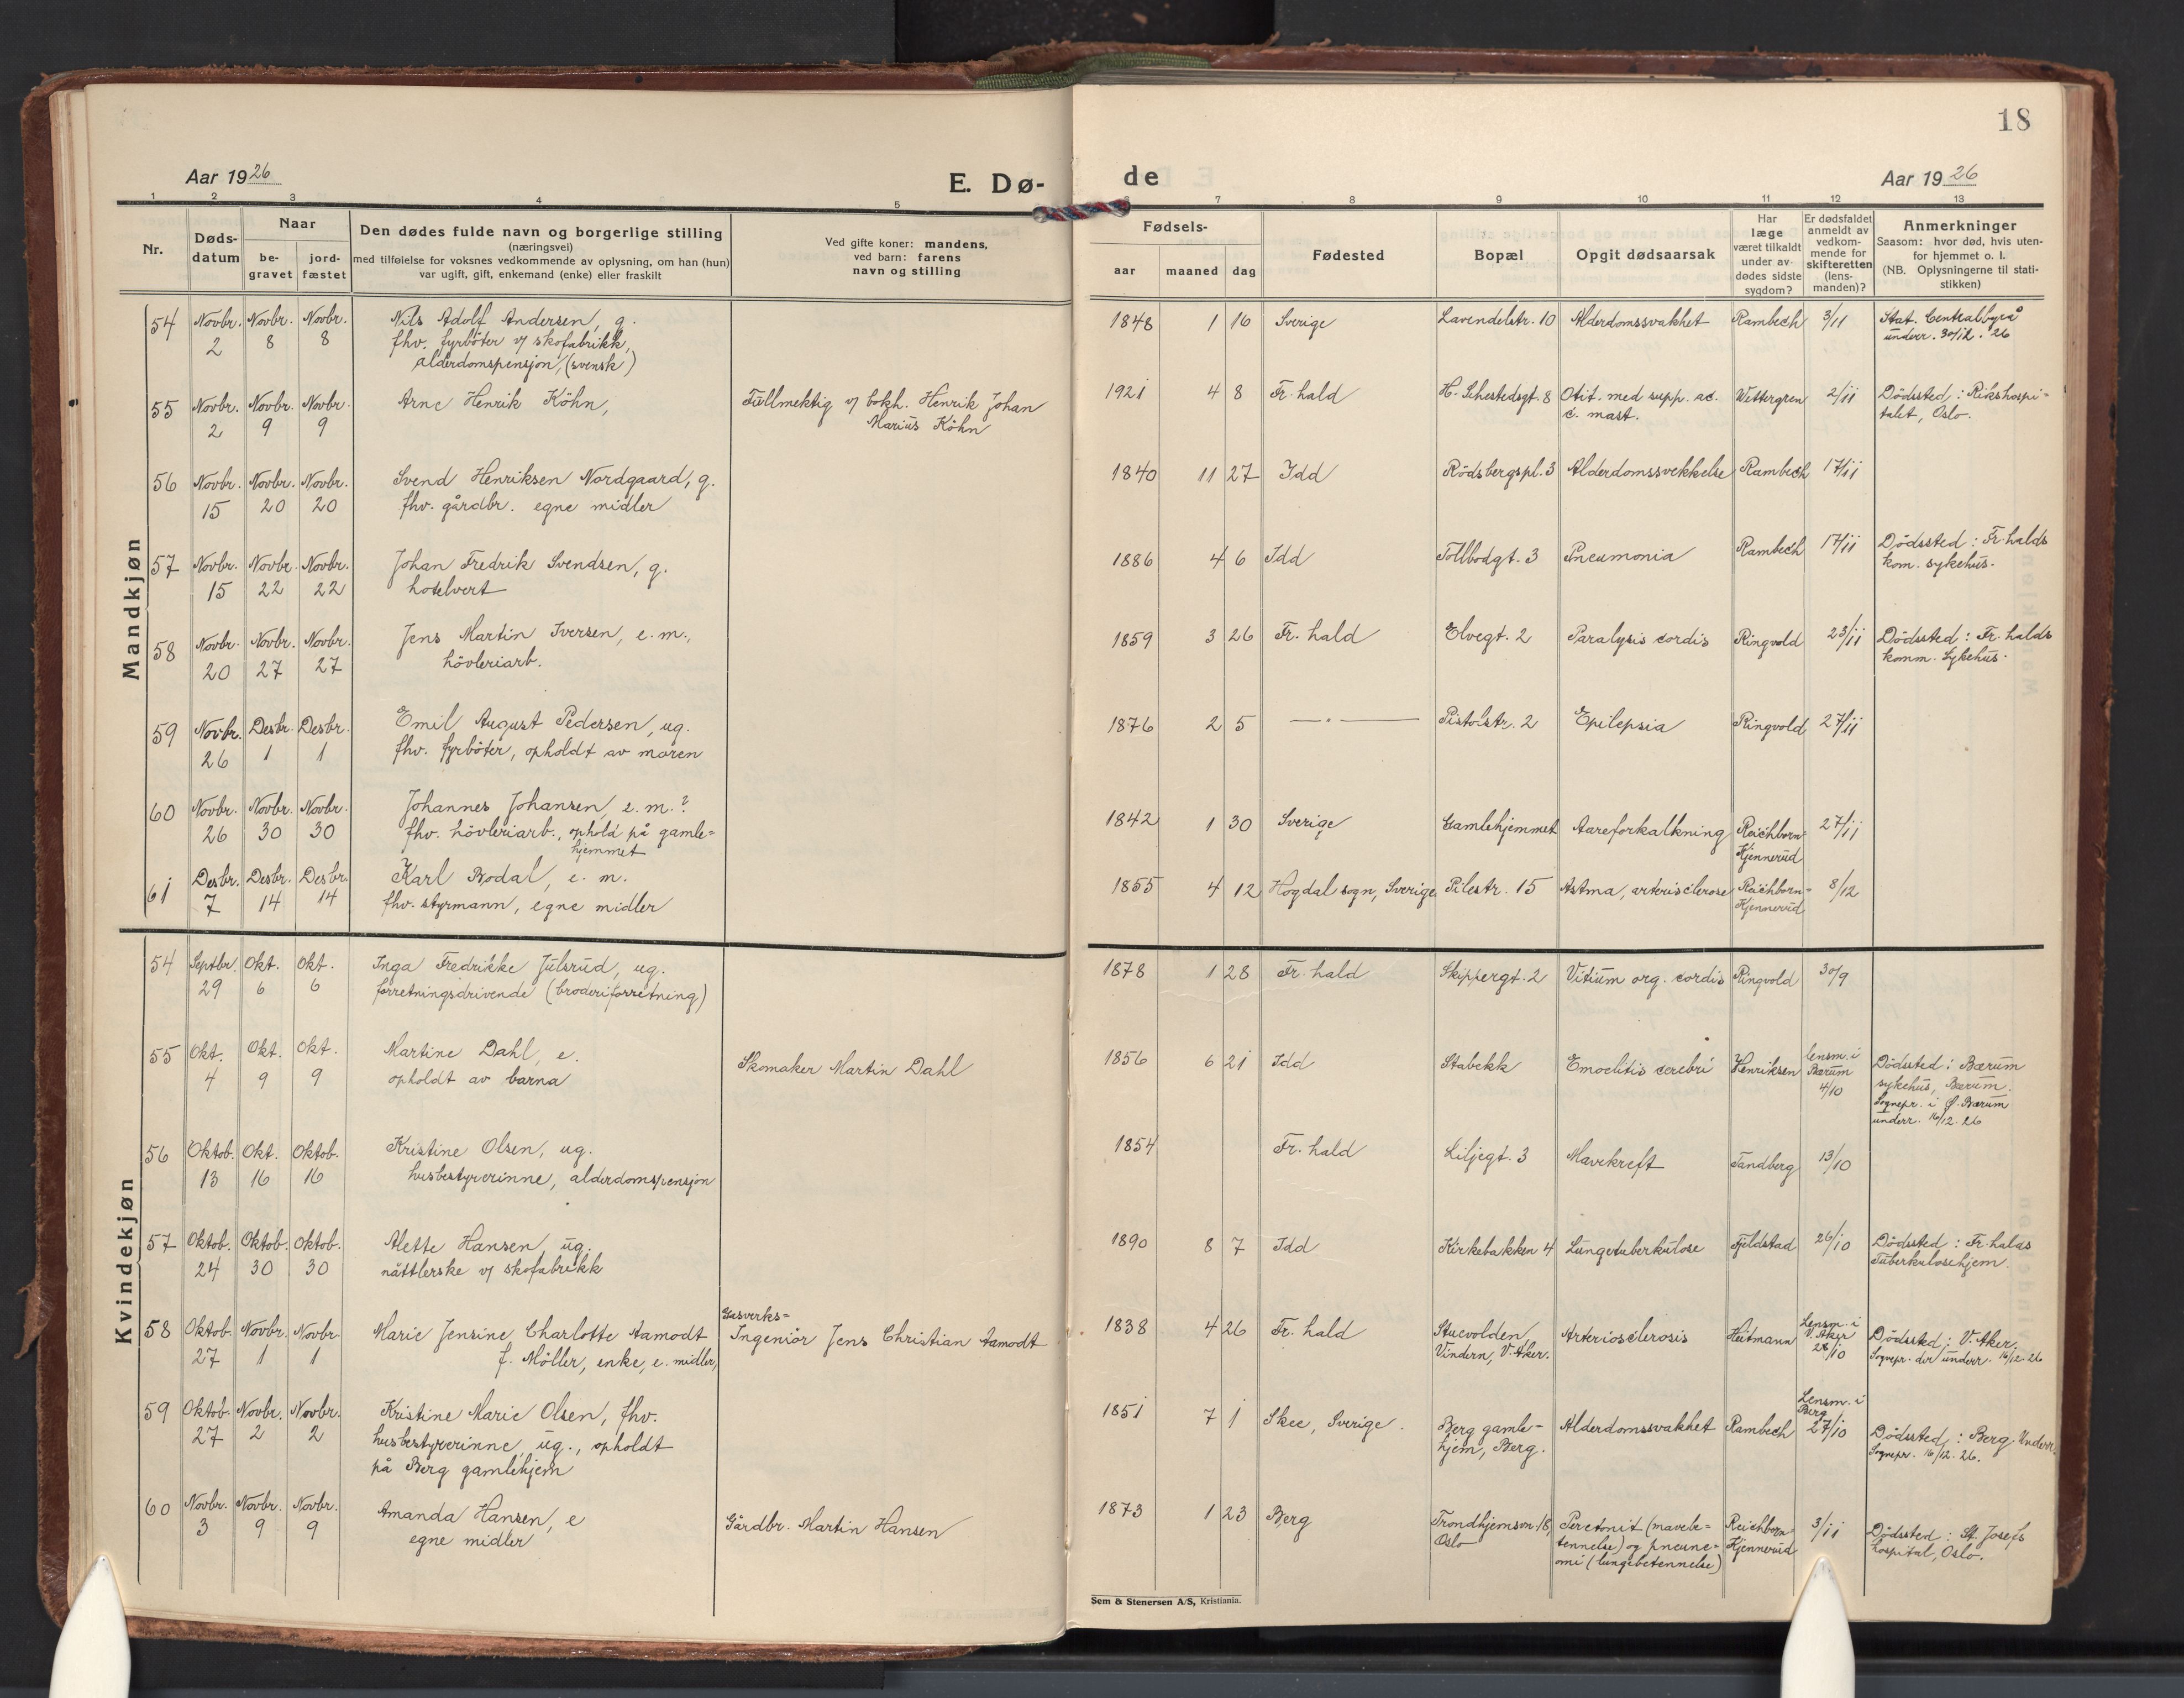 18
Aar 1926
E. Dø-
de
Aar 1926
1 2 3 4 5 6 7 8 9 10 11 12 13
Nr.
Døds-
datum
Naar
be-
gravet
jord-
fæstet
Den dødes fulde navn og borgerlige stilling
(næringsvei)
med tilføielse for voksnes vedkommende av oplysning, om han (hun)
var ugift, gift, enkemand (enke) eller fraskilt
Ved gifte koner: mandens,
ved barn: farens
navn og stilling
Fødsels-
aar maaned dag
Fødested
Bopæl
Opgit dødsaarsak
Har
læge
været tilkaldt
under av-
dødes sidste
sygdom?
Er dødsfaldet
anmeldt av
vedkom-
mende for
skifteretten
(lens-
manden)?
Anmerkninger
Saasom: hvor død, hvis uten-
for hjemmet o. l.
(NB. Oplysningerne til stati-
stikken)
Mandkjøn
54 Novbr. Novbr. Novbr. Nils Adolf Andersen, g. 1848 1 16 Sverige Lavendelstr. 10 Alderdomssvakhet Rambech 3/11 Stat. Centralbyrå
2 8 8 fhv. fyrböter v/ skofabrikk, underr. 30/12. 26
alderdomspensjon, (svensk)
55 Novbr. Novbr. Novbr. Arne Henrik Köhn, Fullmektig v/ bokh. Henrik Johan 1921 4 8 Fr. hald H. Sehestedsgt. 8 Otit. med supp. ac. Wettergren 2/11 Dödssted: Rikshospi-
2 9 9 Marius Köhn c. mast. talet, Oslo.
56 Novbr. Novbr. Novbr. Svend Henriksen Nordgaard, g. 1840 11 27 Idd Rödsbergspl. 3 Alderdomssvekkelse Rambech 17/11
15 20 20 fhv. gårdbr. egne midler
57 Novbr. Novbr. Novbr. Johan Fredrik Svendsen, g. 1886 4 6 Idd Tollbodgt. 3 Pneumonia Rambech 17/11 Dödssted: Fr. halds
15 22 22 hotelvert kom. sykehus.
58 Novbr. Novbr. Novbr. Jens Martin Iversen, e. m., 1859 3 26 Fr. hald Elvegt. 2 Paralysis cordis Ringvold 23/11 Dödssted: Fr. halds
20 27 27 hövleriarb. komm. Sykehus.
59 Novbr. Desbr. Desbr. Emil August Pedersen, ug. 1876 2 5 — " — Pistolstr. 2 Epilepsia Ringvold 27/11
26 1 1 fhv. fyrböter, opholdt av moren
60 Novbr. Novbr. Novbr. Johannes Johansen e. m.? 1842 1 30 Sverige Gamlehjemmet Aareforkalkning Reichborn- 27/11
26 30 30 fhv. hövleriarb., ophold på gamle= Kjennerud
hjemmet
61 Desbr. Desbr. Desbr. Karl Bodal, e. m. 1855 4 12 Hogdal sogn, Sverige Pilestr. 15 Astma, arterisclerose Reichborn= 8/12
7 14 14 fhv. styrmann, egne midler Kjennerud
Kvindekjøn
54 Septbr. Okt. Okt. Inga Fredrikke Julsrud, ug. 1878 1 28 Fr. hald Skippergt. 2 Vitium org. cordis Ringvold 30/9
29 6 6 forretningsdrivende (broderiforretning)
55 Okt. Okt. Okt. Martine Dahl, e. Skomaker Martin Dahl 1856 6 21 Idd Stabekk Emoelitis cerebri Henriksen lensm. i Dödssted: Bærum
4 9 9 opholdt av barna Bærum sykehus, Bærum.
4/10 Sognepr. i Ø. Bærum
underr. 16/12. 26
56 Oktob. Okt. Oktob. Kristine Olsen, ug. 1854 Fr. hald Liljegt. 3 Mavekreft Tandberg 13/10
13 16 16 husbestyrerinne, alderdomspensjon
57 Oktob. Oktob. Oktob. Alette Hansen, ug. 1890 8 7 Idd Kirkebakken 4 Lungetuberkulose Fjeldstad 26/10 Dödssted: Fr. halds
24 30 30 nåttlerske v/ skofabrikk Tuberkulosehjem.
58 Oktob. Novbr. Novbr. Marie Jensine Charlotte Aamodt Gasverks=
27 1 1 f. Möller, enke, e. midler, Ingeniör Jens Christian Aamodt 1838 4 26 Fr. hald Stuevolden, Arteriosclerosis Heitmann Lensm. i Dödssted: V. Aker.
Vindern, V. Aker. V. Aker 28/10 Sognepr. der underr. 16/12. 26
59 Oktob. Novbr. Novbr. Kristine Marie Olsen, fhv. 1851 7 1 Skee, Sverige. Berg gamle- Alderdomssvakhet Rambech Lensm. i Berg 27/10 Dödssted: Berg. Underr.
27 2 2 husbestyrerinne, ug., opholdt hjem, Berg. Sognepr. 16/12. 26.
på Berg gamlehjem
60 Novbr. Novbr. Novbr. Amanda Hansen, e Gårdbr. Martin Hansen 1873 1 23 Berg Trondhjemsvn. 18, Peretonit (mavebe= Reichborn- 3/11 Dödssted: St. Josefs
3 9 9 egne midler Oslo tennelse) og pneune= Kjennerud hospital, Oslo.
omi (lungebetennelse)
Sem & Stenersen A/S, Kristiania.